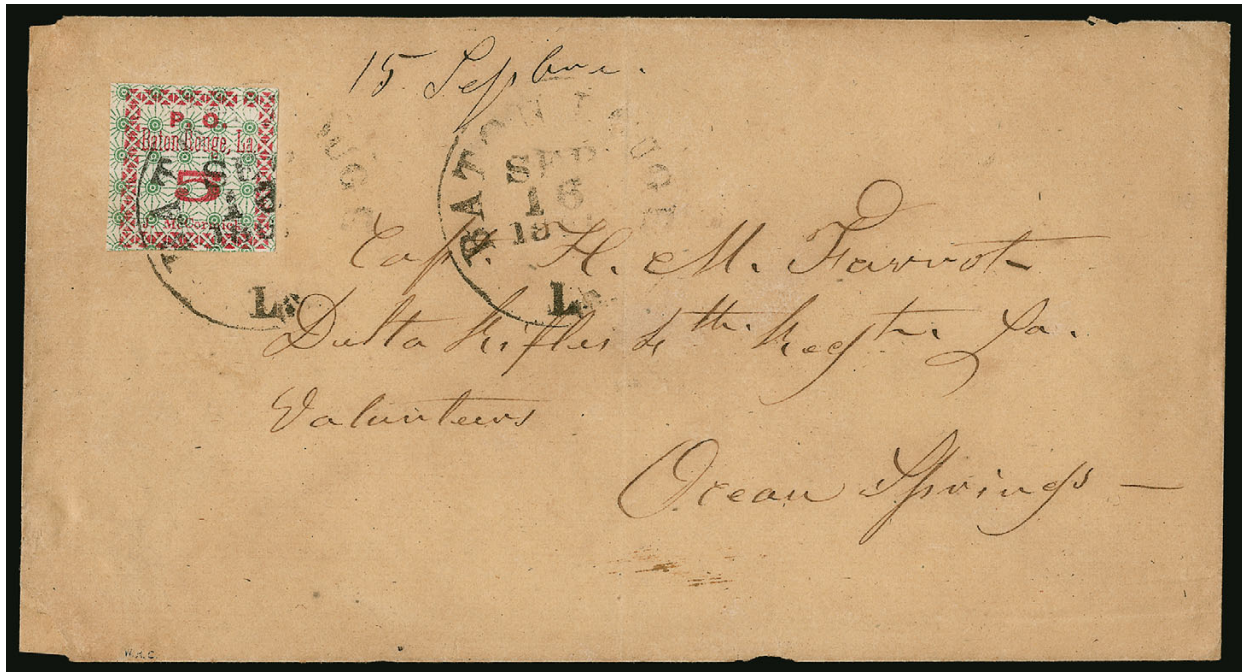 15 Septbre.
P. O.
Baton Rouge, La.
5
J. McCormick.
SEP
16
La
BATON ROUGE
SEP
16
La
Cap. H. M. Favrot
Delta Rifles 4th. Regt. La.
Volunteers
Ocean Springs —
W.H.C.